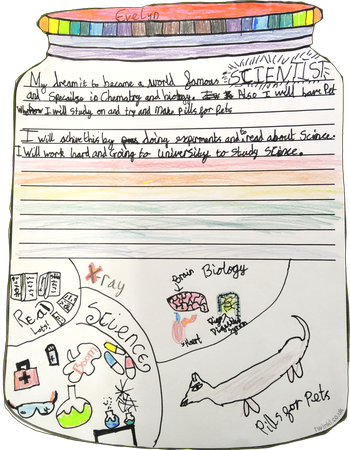 Evelyn
My dream it to become a world famous SCIENTIST
and Specailze in Chematry and biology. Also I will have Pet
I will study on and try and make Pills for Pets
I will achive this by doing expirments and to read about Science.
I will work hard and going to university to study Science.
X-ray
Brain Biology
Read
lots!
Science
Heart
Digestive
System
Boom
Pills for Pets
twinkl.co.uk